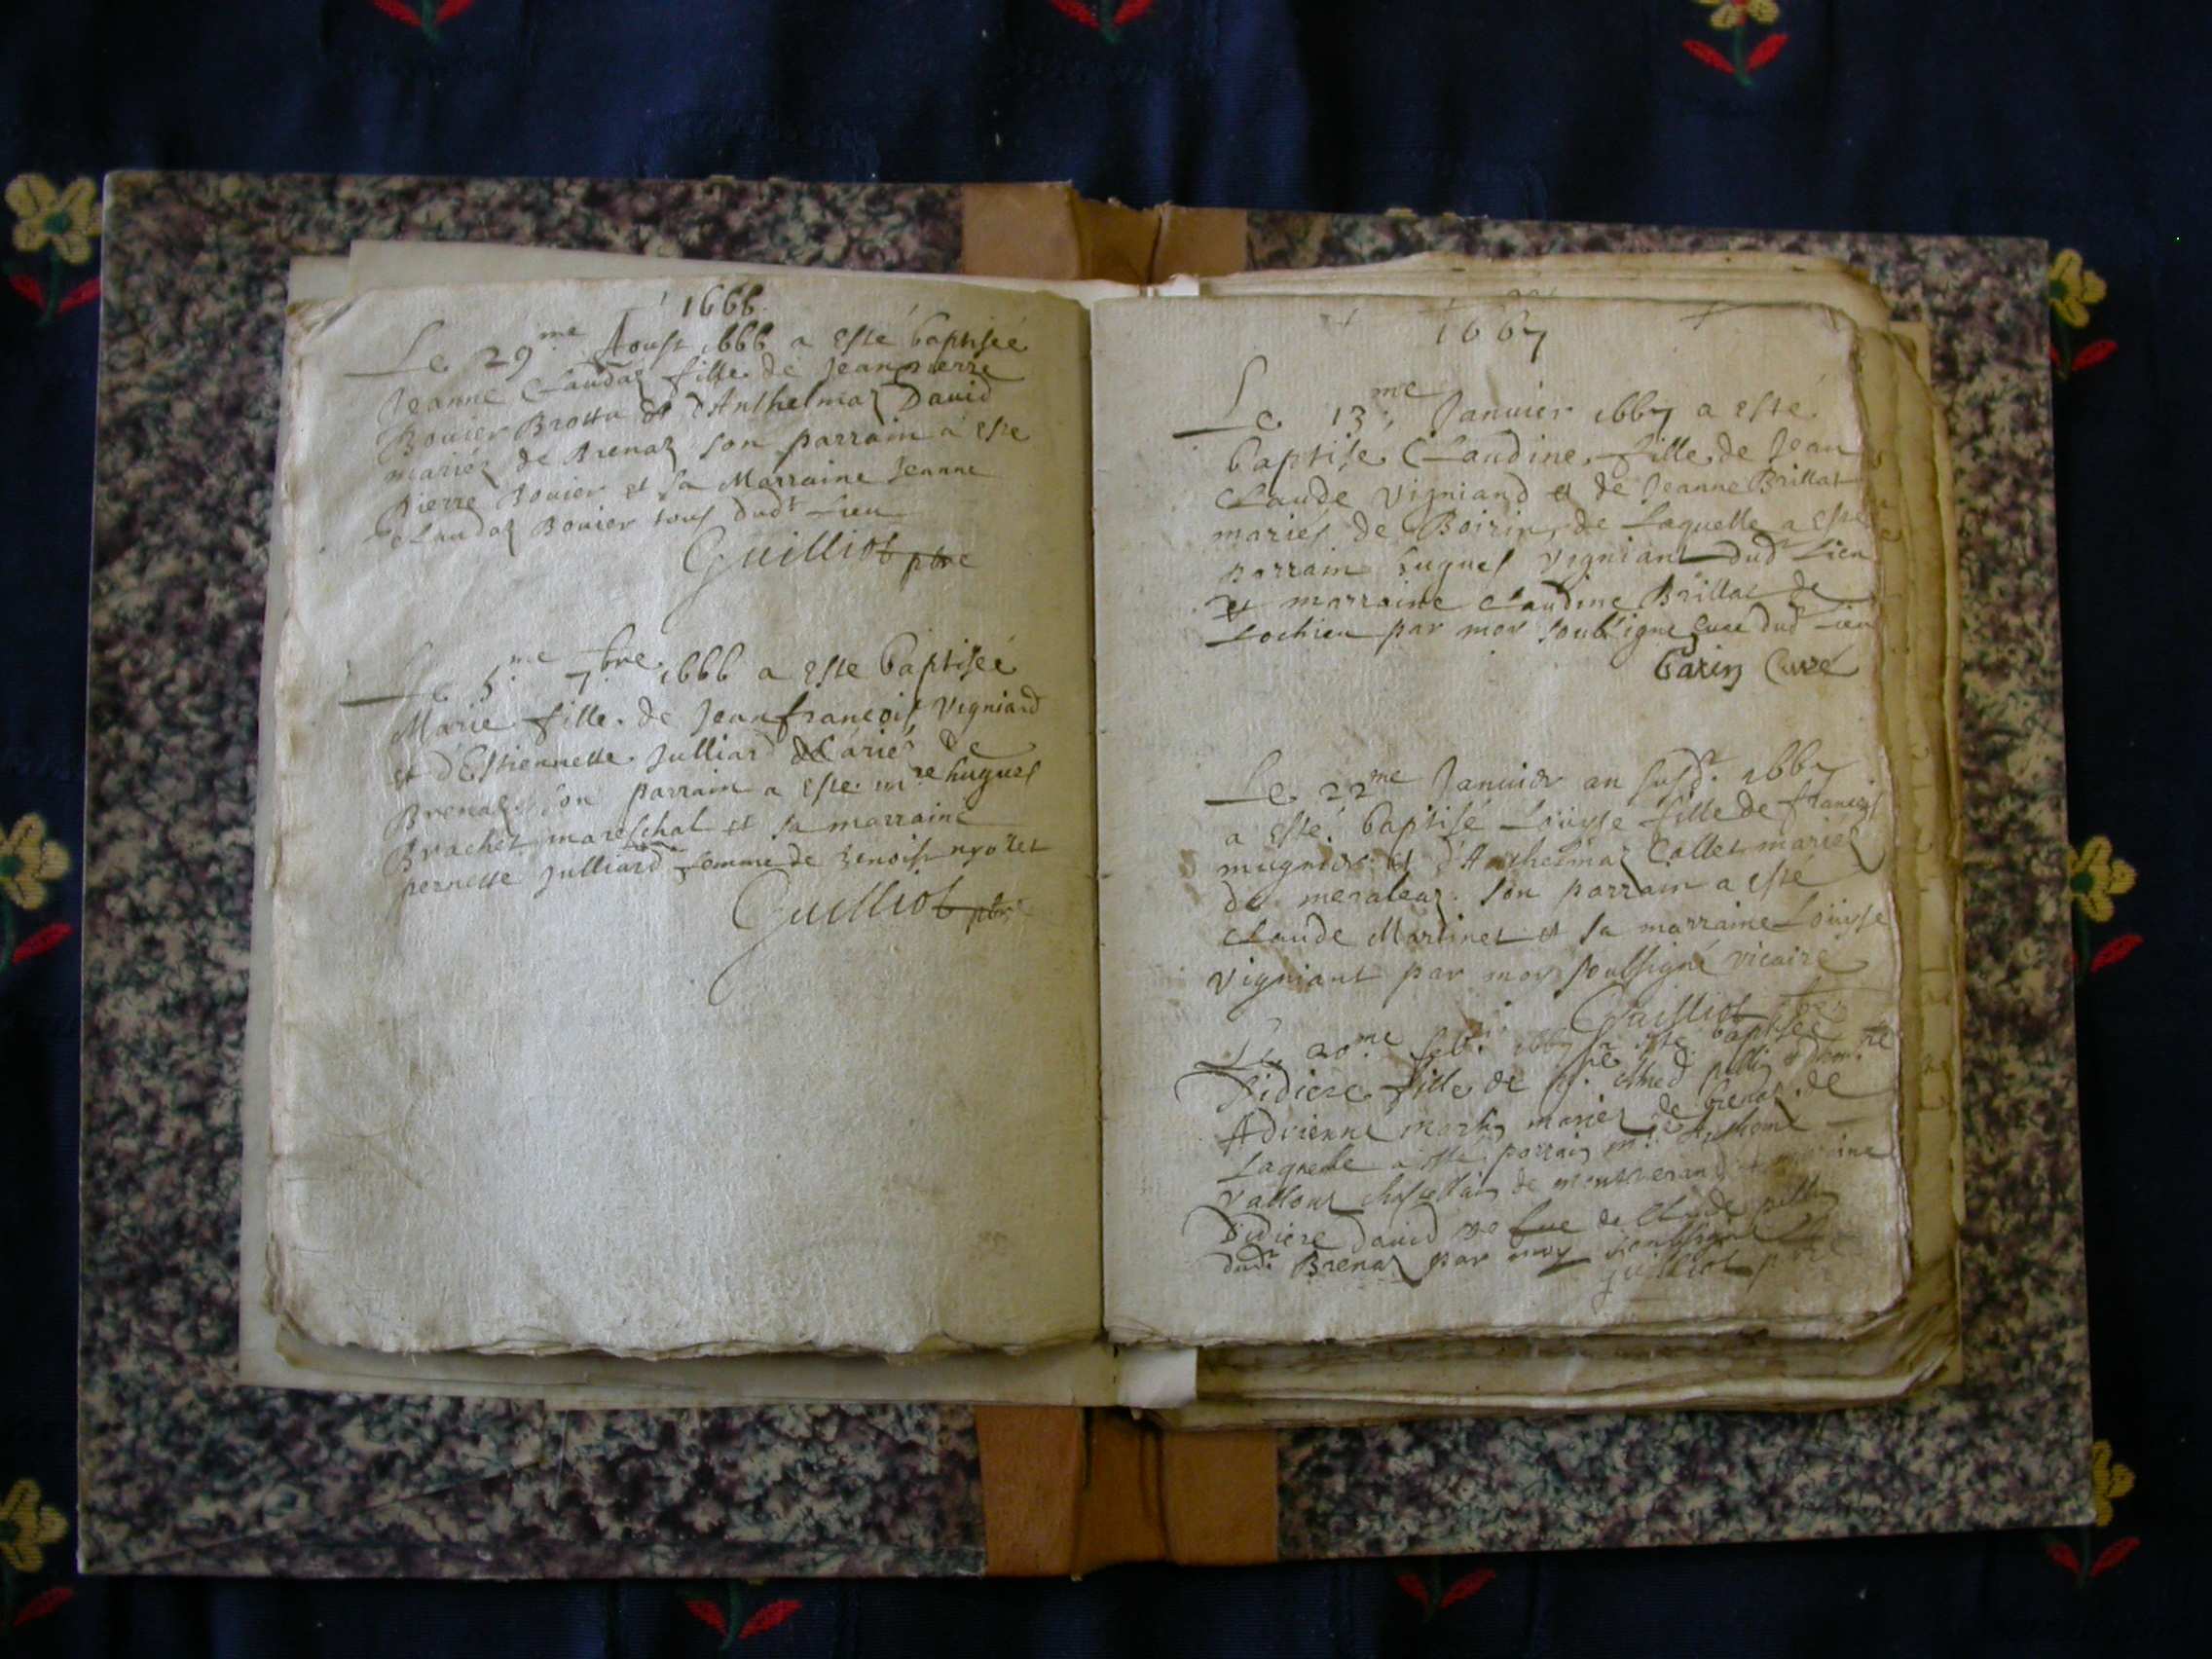 1666
Le 29.me Aoust 1666 a esté baptiseé
Jeanne Claudaz fille de Jeanpierre
Bouier Brottu et d'Anthelmaz David
mariéz de Brenaz son parrain a esté
Pierre Bouier et sa Marraine Jeanne
Claudaz Bouier tous dudt Lieu
Guilliot ptre
Le 5.me 7.bre 1666 a este baptiseé
Marie fille de Jeanfrancois Vigniard
et d'Estiennette Julliard Mariés de
Brenaz son parrain a este m.re hugues
Brachet mareschal et sa marraine
pernette Julliard femme de benoist
Guilliot ptr
1667
Le 13.me Januier 1667 a esté
baptise Claudine fille de Jean
Claude Vigniand et de Jeanne Brillat
mariés de Boirin, de Laquelle a esté
parrain hugues Vigniant dudt Lieu
et marraine Claudine Brillat de
Lochieu par moy soubsigne Cure dudt Lieu
Carin Curé
Le 22me Januier an susdt. 1667
a esté baptisé Loüyse fille de francois
mugnier et d'Anthelmaz Collet mariéz
de meraleaz. son parrain a esté
Claude Martinet et sa marraine Loüyse
Vigniant par moy soubsigné vicaire
Guilliot ptre
Le 20.me feb. 1667 a esté baptisée
Didiere fille de
Adrienne mariéz de brenaz. de
Laquelle a esté parrain m.re Anthoine
Vallour chastellain de et marraine
Didiere David de Claude
dudt Brenaz par moy soubsigné
guilliot ptre